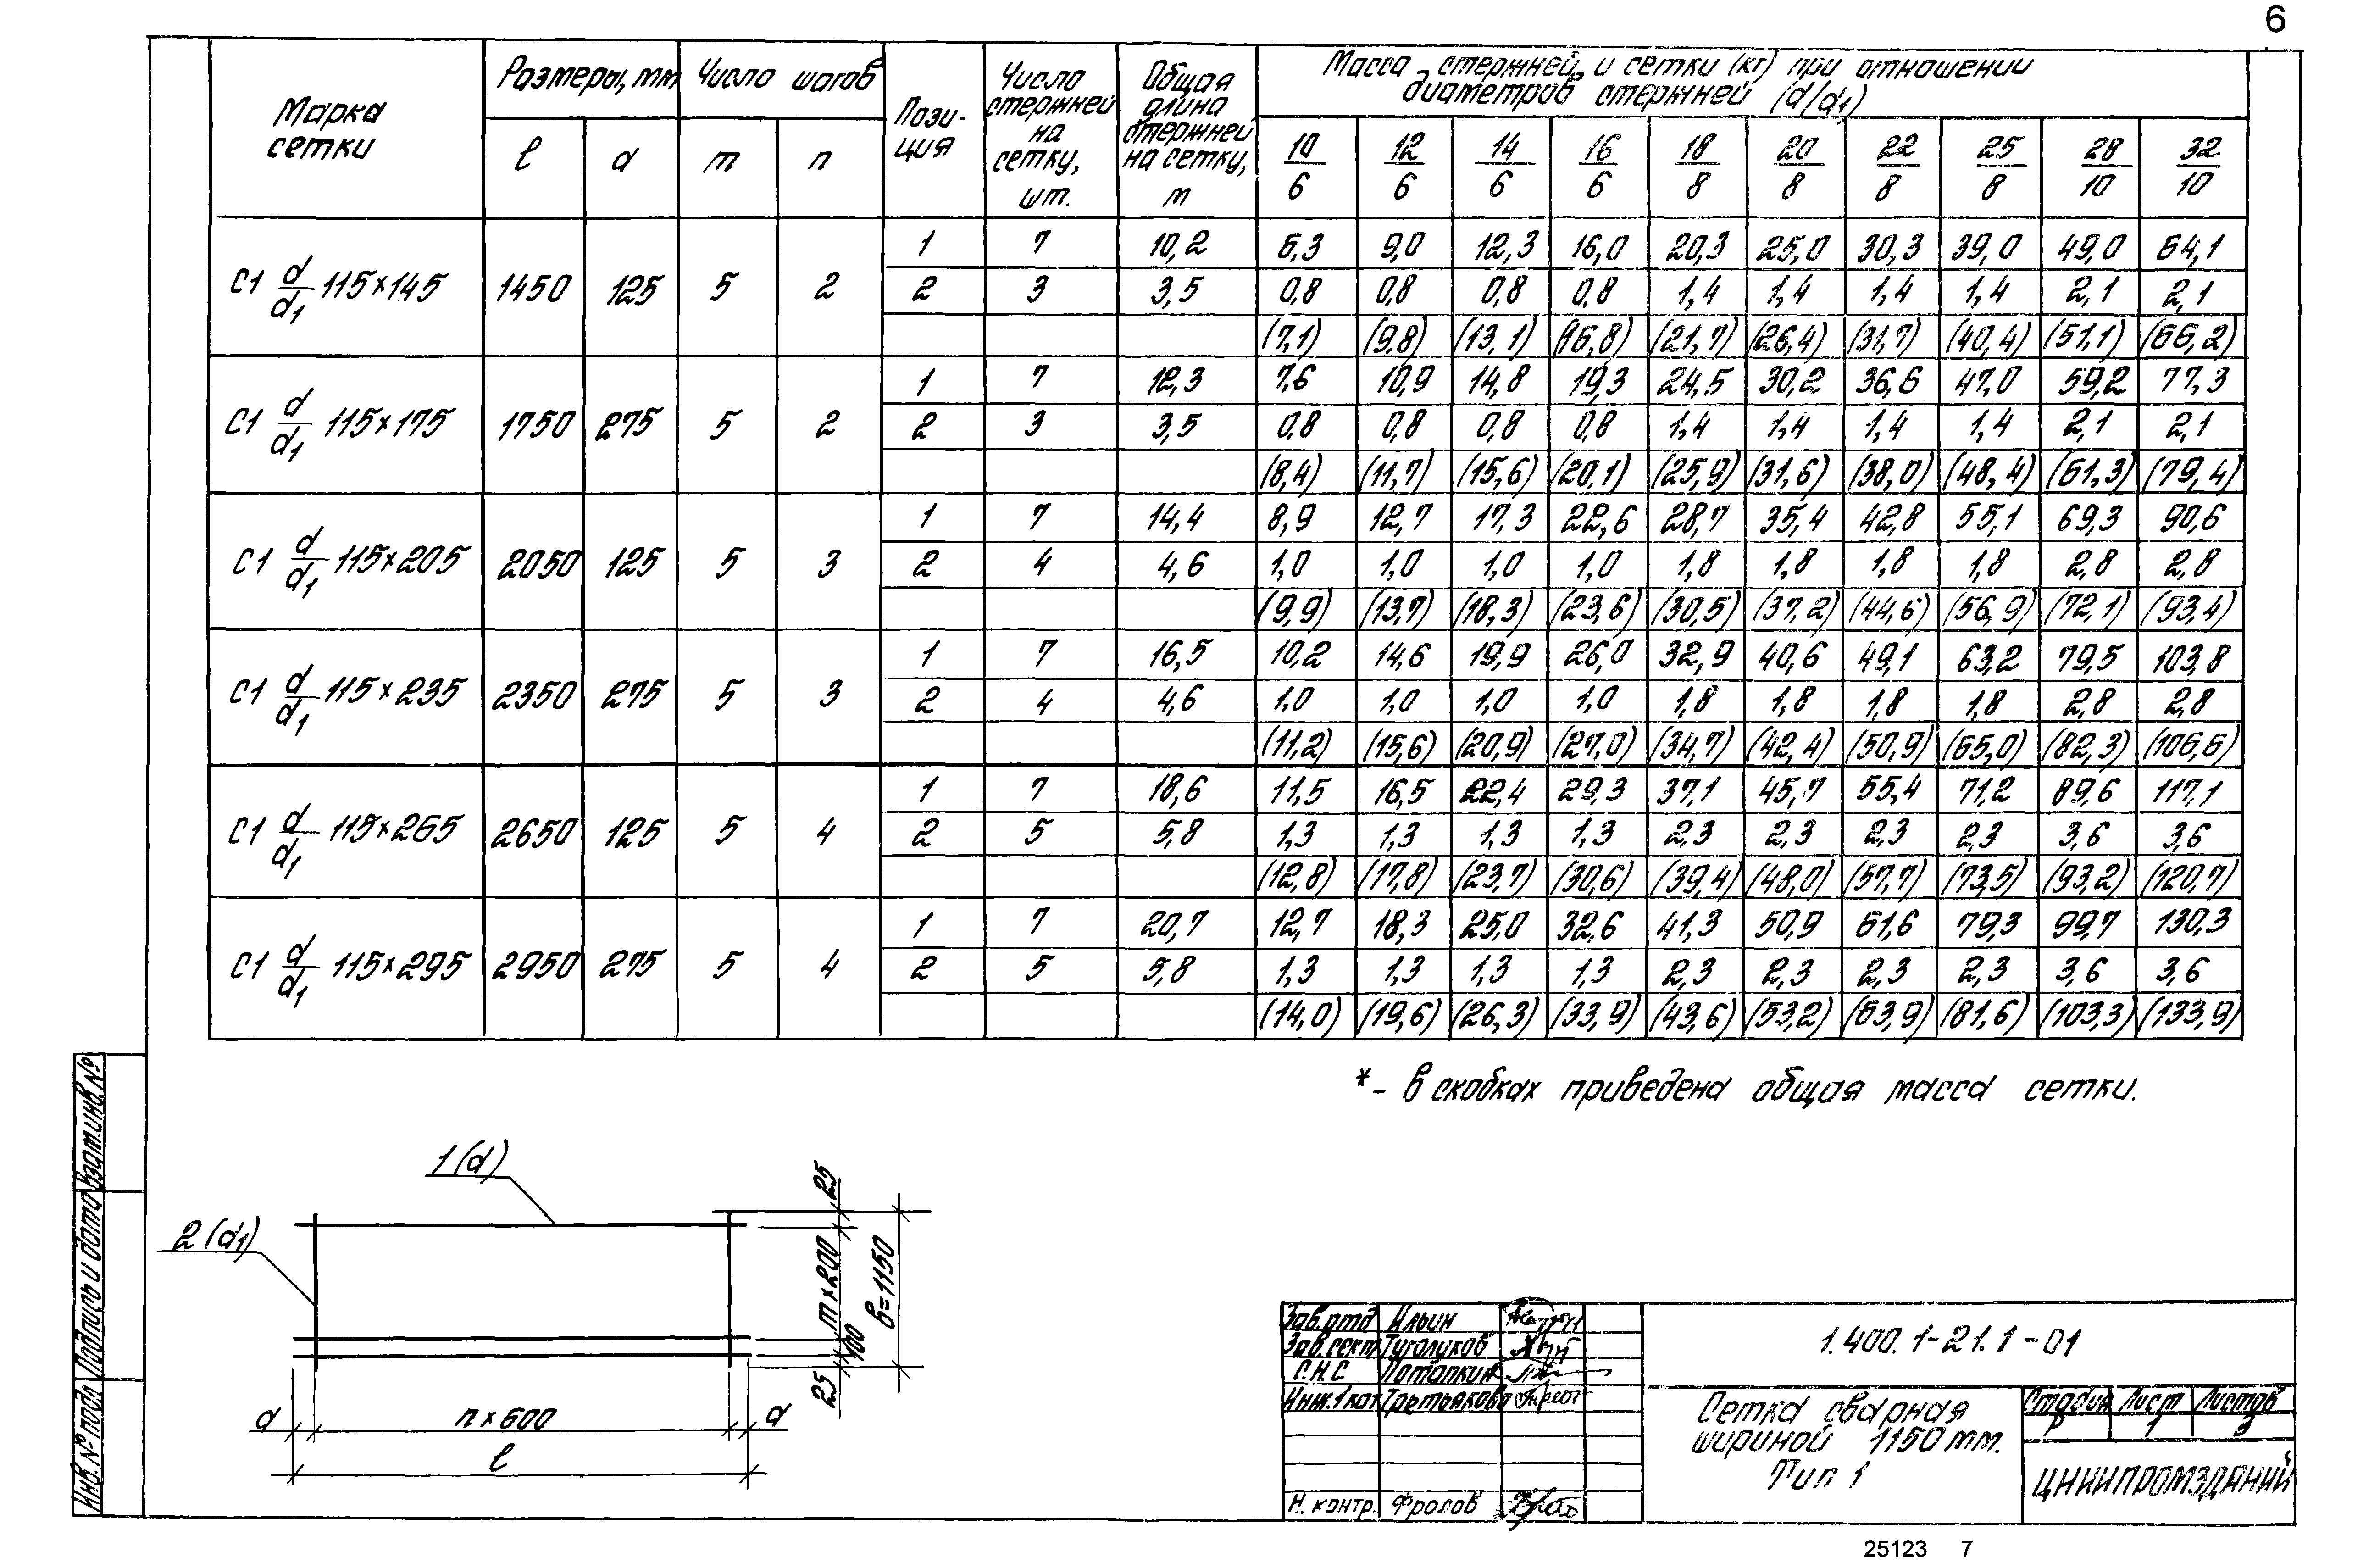 6
Марка сетки | Размеры, мм | Число шагов | Пози-ция | Число стержней на сетку, шт. | Общая длина стержней на сетку, м | Масса стержней и сетки (кг) при отношении диаметров стержней (d/d1)
l | a | m | n | 10/6 | 12/6 | 14/6 | 16/6 | 18/8 | 20/8 | 22/8 | 25/8 | 28/10 | 32/10
С1 d/d1 115×145 | 1450 | 125 | 5 | 2 | 1 | 7 | 10,2 | 6,3 | 9,0 | 12,3 | 16,0 | 20,3 | 25,0 | 30,3 | 39,0 | 49,0 | 64,1
2 | 3 | 3,5 | 0,8 | 0,8 | 0,8 | 0,8 | 1,4 | 1,4 | 1,4 | 1,4 | 2,1 | 2,1
(7,1) | (9,8) | (13,1) | (16,8) | (21,7) | (26,4) | (31,7) | (40,4) | (51,1) | (66,2)
С1 d/d1 115×175 | 1750 | 275 | 5 | 2 | 1 | 7 | 12,3 | 7,6 | 10,9 | 14,8 | 19,3 | 24,5 | 30,2 | 36,6 | 47,0 | 59,2 | 77,3
2 | 3 | 3,5 | 0,8 | 0,8 | 0,8 | 0,8 | 1,4 | 1,4 | 1,4 | 1,4 | 2,1 | 2,1
(8,4) | (11,7) | (15,6) | (20,1) | (25,9) | (31,6) | (38,0) | (48,4) | (61,3) | (79,4)
С1 d/d1 115×205 | 2050 | 125 | 5 | 3 | 1 | 7 | 14,4 | 8,9 | 12,7 | 17,3 | 22,6 | 28,7 | 35,4 | 42,8 | 55,1 | 69,3 | 90,6
2 | 4 | 4,6 | 1,0 | 1,0 | 1,0 | 1,0 | 1,8 | 1,8 | 1,8 | 1,8 | 2,8 | 2,8
(9,9) | (13,7) | (18,3) | (23,6) | (30,5) | (37,2) | (44,6) | (56,9) | (72,1) | (93,4)
С1 d/d1 115×235 | 2350 | 275 | 5 | 3 | 1 | 7 | 16,5 | 10,2 | 14,6 | 19,9 | 26,0 | 32,9 | 40,6 | 49,1 | 63,2 | 79,5 | 103,8
2 | 4 | 4,6 | 1,0 | 1,0 | 1,0 | 1,0 | 1,8 | 1,8 | 1,8 | 1,8 | 2,8 | 2,8
(11,2) | (15,6) | (20,9) | (27,0) | (34,7) | (42,4) | (50,9) | (65,0) | (82,3) | (106,6)
С1 d/d1 115×265 | 2650 | 125 | 5 | 4 | 1 | 7 | 18,6 | 11,5 | 16,5 | 22,4 | 29,3 | 37,1 | 45,7 | 55,4 | 71,2 | 89,6 | 117,1
2 | 5 | 5,8 | 1,3 | 1,3 | 1,3 | 1,3 | 2,3 | 2,3 | 2,3 | 2,3 | 3,6 | 3,6
(12,8) | (17,8) | (23,7) | (30,6) | (39,4) | (48,0) | (57,7) | (73,5) | (93,2) | (120,7)
С1 d/d1 115×295 | 2950 | 275 | 5 | 4 | 1 | 7 | 20,7 | 12,7 | 18,3 | 25,0 | 32,6 | 41,3 | 50,9 | 61,6 | 79,3 | 99,7 | 130,3
2 | 5 | 5,8 | 1,3 | 1,3 | 1,3 | 1,3 | 2,3 | 2,3 | 2,3 | 2,3 | 3,6 | 3,6
(14,0) | (19,6) | (26,3) | (33,9) | (43,6) | (53,2) | (63,9) | (81,6) | (103,3) | (133,9)
*- в скобках приведена общая масса сетки.
1(d)
2(d1)
25
m×200
в=1150
100
25
a
n×600
a
l
Взам.инв.№
Подпись и дата
Инв.№ подл
Зав.отд Ильин
Зав.сект. Туголуков
С.Н.С. Потапкин
Инж.1кат Третьякова
Н. контр. Фролов
1.400.1-21.1-01
Сетка сварная
шириной 1150 мм.
Тип 1
Стадия Лист Листов
Р 1 3
ЦНИИПРОМЗДАНИЙ
25123 7